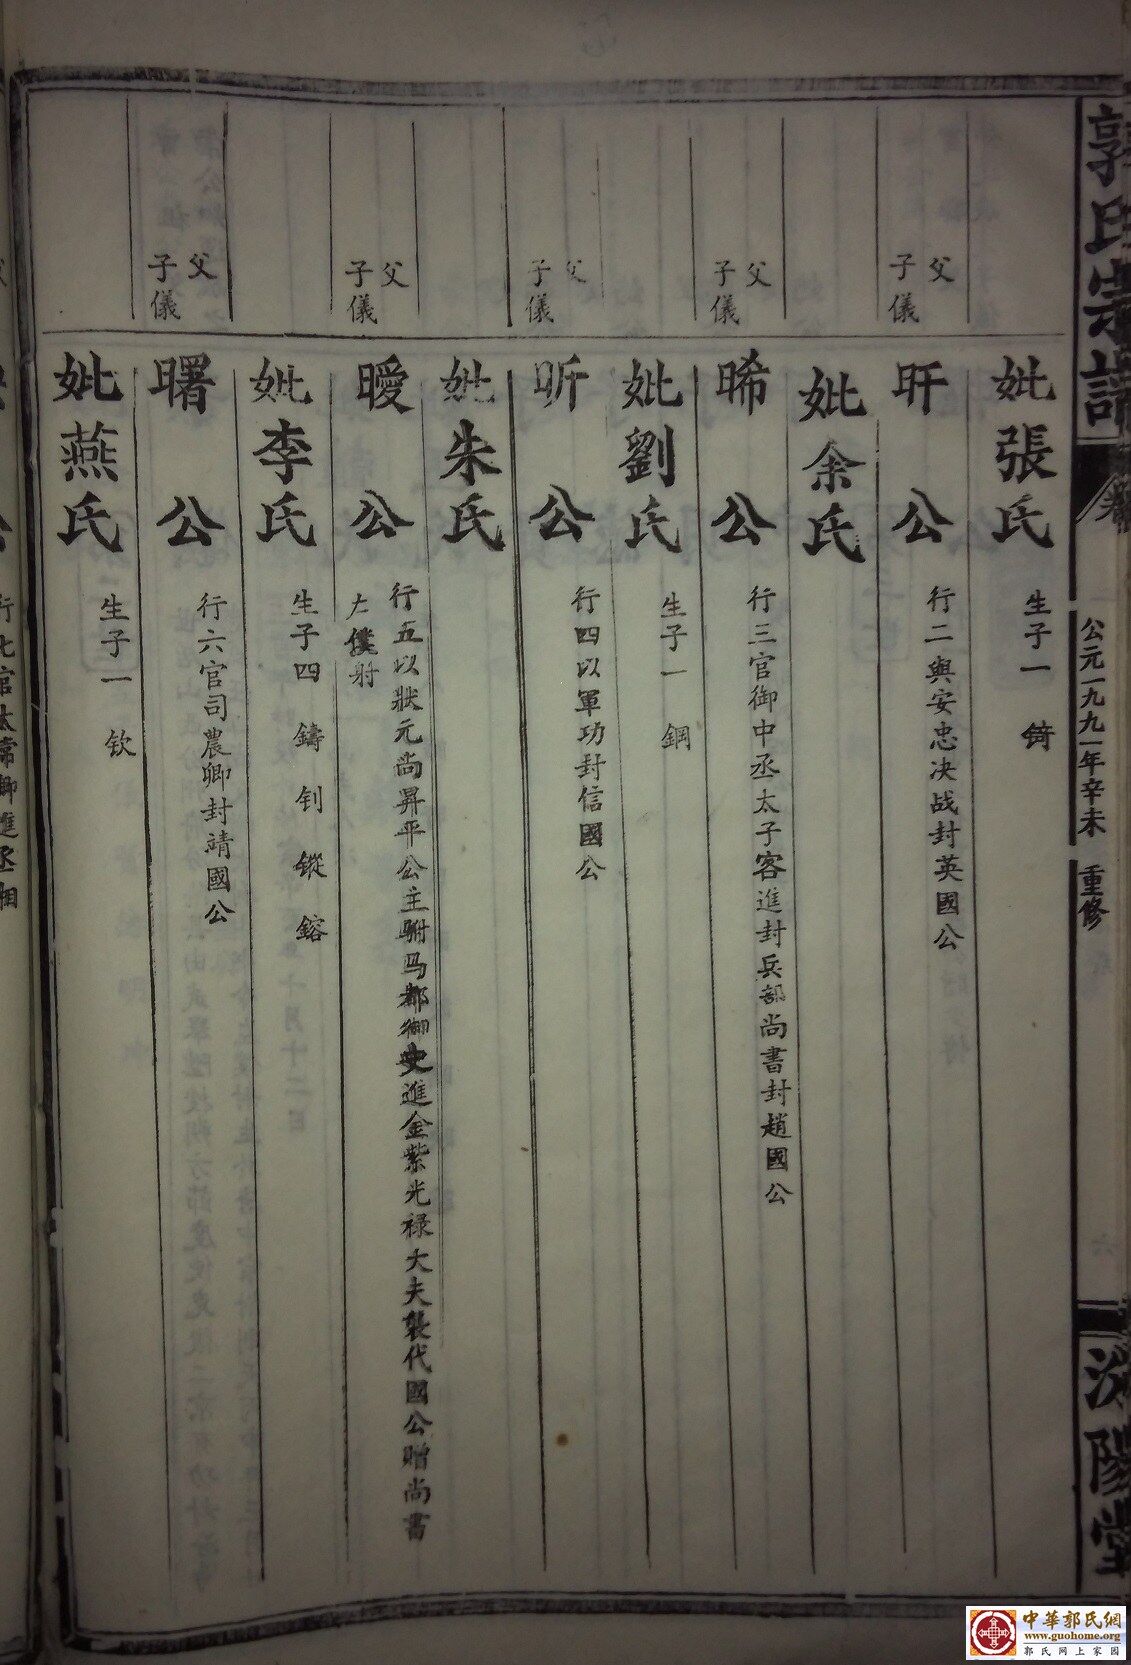 郭氏宗譜
卷
公元一九九一年辛未
重修
六
汾陽堂
妣張氏 生子一 錡
父子儀
旰公 行二與安忠决战封英國公
妣余氏
父子儀
晞公 行三官御中丞太子客進封兵部尚書封趙國公
妣劉氏 生子一 鋼
父子儀
昕公 行四以軍功封信國公
妣朱氏
父子儀
曖公 行五以狀元尚昇平公主駙马都御史進金紫光禄大夫襲代國公贈尚書
左僕射
妣李氏 生子四 鑄 钊 鏦 鎔
父子儀
曙公 行六官司農卿封靖國公
妣燕氏 生子一 钦
公 行七官太常卿進丞相
中華郭氏網
www.guohome.org
郭氏网上家园